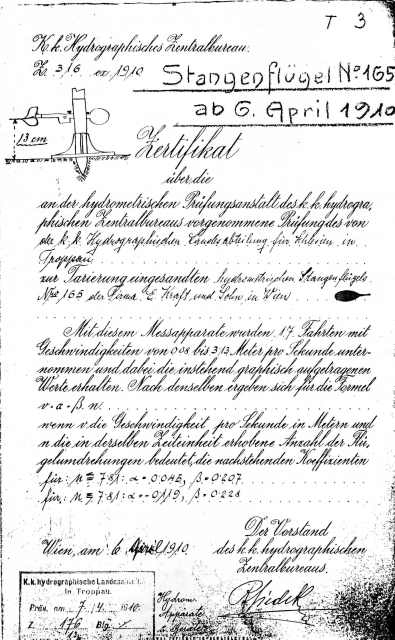 T 3
K.k. Hydrographisches Zentralbureau.
Z. 316 ex 1910
Stangenflügel No 165
ab 6. April 1910
13 cm
Zertifikat
über die
an der hydrometrischen Prüfungsanstalt des k.k. hydrogra,
phischen Zentralbureaus vorgenommene Prüfung des von
der k.k. Hydrographischen Landesabteilung für Schlesien in
Troppau
zur Tarierung eingesandten hydrometrischen Stangenflügels
No 165 der Firma E. Kraft und Sohn in Wien
Mit diesem Messapparate wurden 17 Fahrten mit
Geschwindigkeiten von 0.08 bis Meter pro Sekunde unter-
nommen und dabei die instehend graphisch aufgetragenen
Werte erhalten. Nach denselben ergeben sich für die Formel
v = α + β. n.
wenn v die Geschwindigkeit pro Sekunde in Metern und
n die in derselben Zeiteinheit erhobene Anzahl der Flü,
gelumdrehungen bedeutet, die nachstehenden Koeffizienten
für: n 781: α = 0.045, β = 0.207
für: n 781: α = β = 0.228
Wien, am 6 April 1910.
Der Vorstand
des k.k. hydrographischen
Zentralbureaus.
K.k. hydrographische Landes
in Troppau.
Präs. am 7./4. 1910.
Z. 176 Blg.
Hydrom.
Apparate